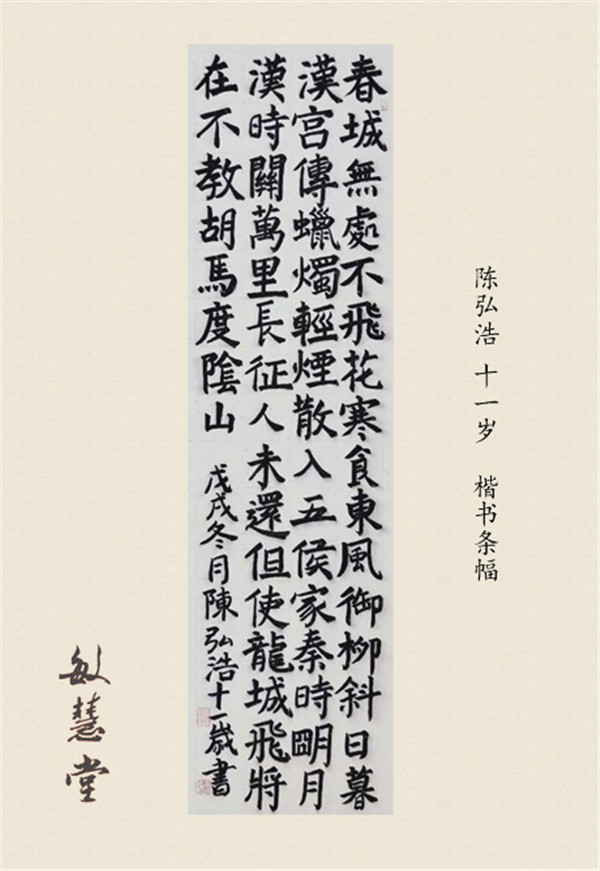 陈弘浩 十一岁 楷书条幅
春城無處不飛花寒食東風御柳斜日暮
漢宮傳蠟燭輕煙散入五侯家秦時朙月
漢時關萬里長征人未還但使龍城飛將
在不教胡馬度陰山
戊戌冬月陳弘浩十一歲書
敏慧堂